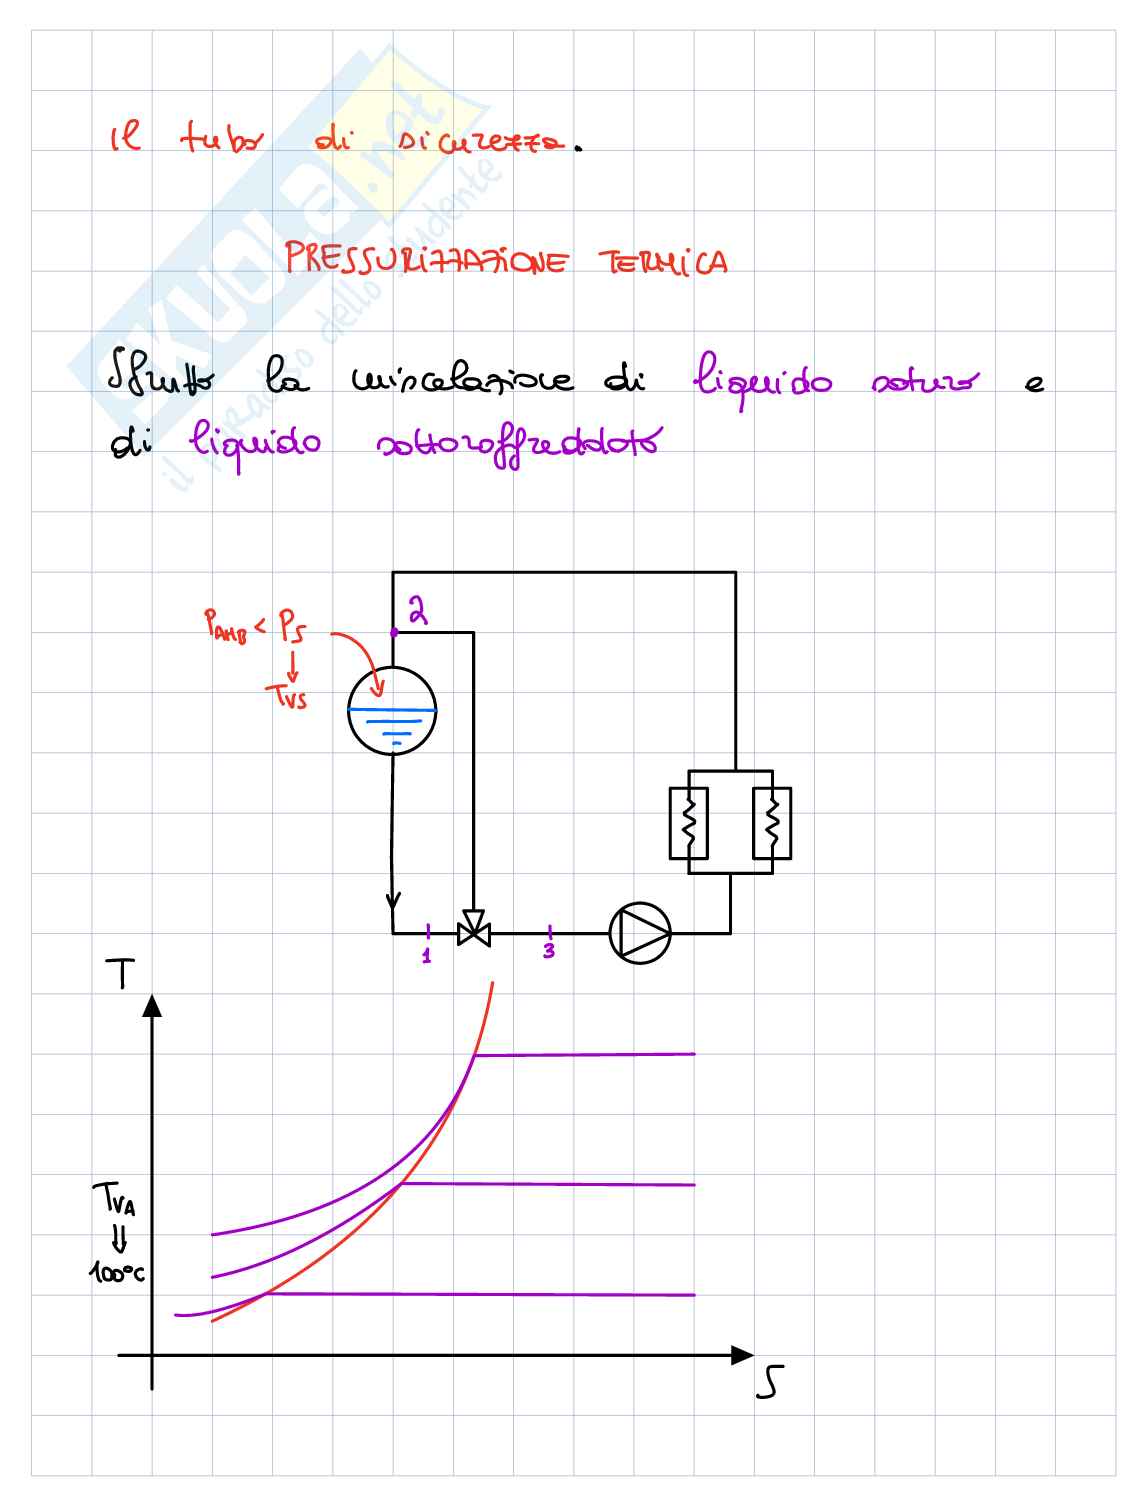 Il tubo di sicurezza.
PRESSURIZZAZIONE TERMICA
Sfrutto la miscelazione di liquido saturo e
di liquido sottoraffreddato
2
PAMB < PS
TVS
1
3
T
TVA
100°C
S
SKUOLA.net
il paradiso dello studente